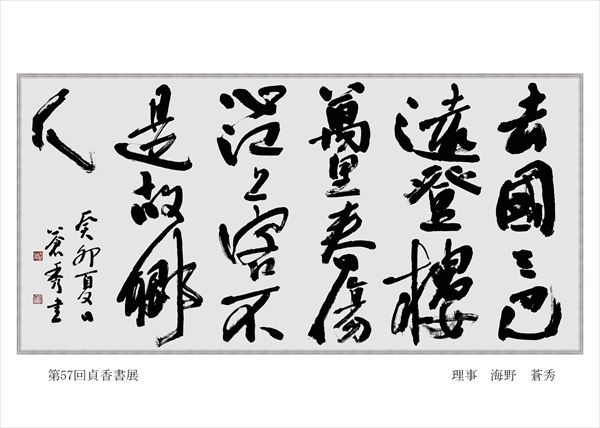 去國三巴
遠登樓
萬里春傷
心江上客不
是故鄉
人
癸卯夏日
蒼秀書
第57回貞香書展
理事　海野　蒼秀